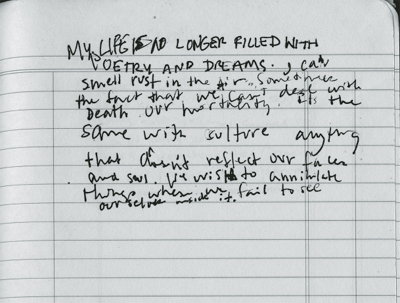 MY LIFE IS NO LONGER FILLED WITH
POETRY AND DREAMS. I can
smell rust in the air. Sometimes
the fact that we can't deal with
death our mortality. its the
same with culture anything
that doesn't reflect our faces
and soul. We wish to annihilate
things when we fail to see
ourselves inside it.